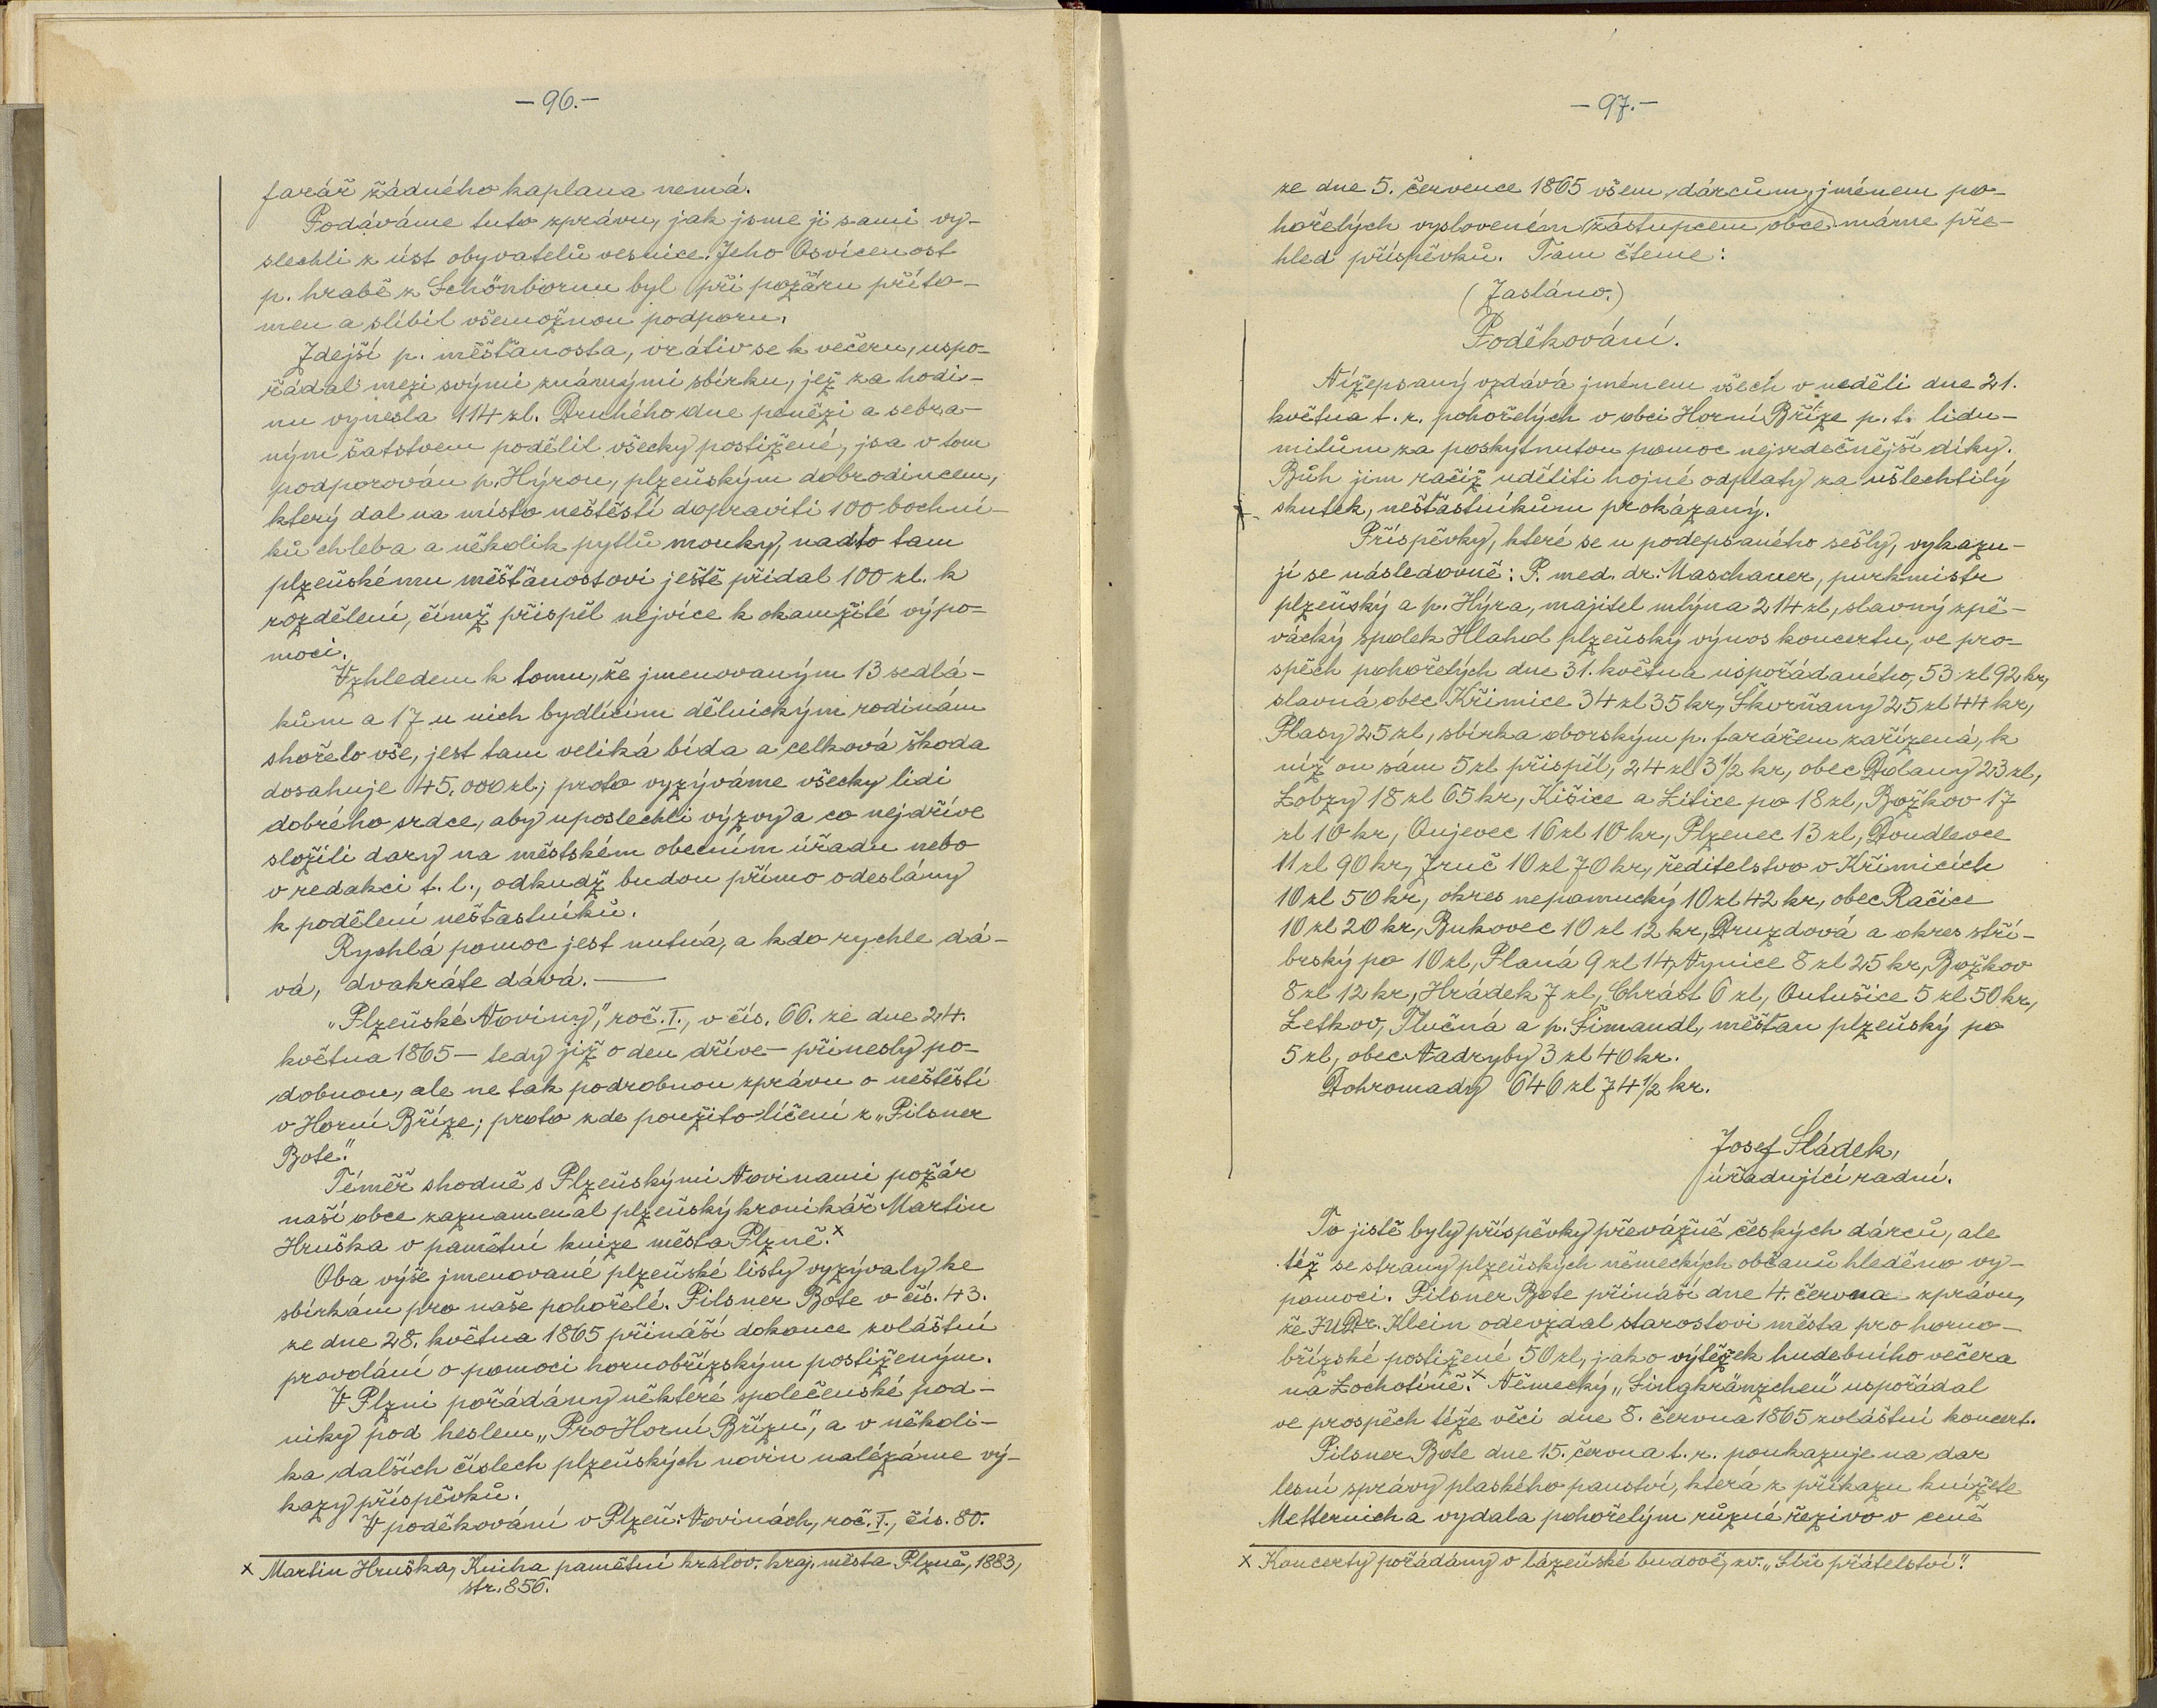 – 96. –
farář žádného kaplana nemá.
Podáváme tuto zprávu, jak jsme ji sami vy-
slechli z úst obyvatelů vesnice. Jeho Osvícenost
p. hrabě z Schönbornu byl při požáru příto-
men a slíbil všemožnou podporu.
Zdejší p. měšťanosta, vrátiv se k večeru, uspo-
řádal mezi svými známými sbírku, jež za hodi-
nu vynesla 114 zl. Druhého dne penězi a sebra-
ným šatstvem podělil všecky postižené, jsa v tom
podporován p. Hýrou, plzeňským dobrodincem,
který dal na místo neštěstí dopraviti 100 bochní-
ků chleba a několik pytlů mouky, nadto tam
plzeňskému měšťanostovi ještě přidal 100 zl. k
rozdělení, čímž přispěl nejvíce k okamžité výpo-
moci.
Vzhledem k tomu, že jmenovaným 13 sedlá-
kům a 17 u nich bydlícím dělnickým rodinám
shořelo vše, jest tam veliká bída a celková škoda
dosahuje 45.000 zl.; proto vyzýváme všecky lidi
dobrého srdce, aby uposlechli výzvy a co nejdříve
složili dary na městském obecním úřadu nebo
v redakci t. l., odkudž budou přímo odeslány
k podělení nešťastníků.
Rychlá pomoc jest nutná, a kdo rychle dá-
vá, dvakráte dává. —
„Plzeňské Noviny", roč. I., v čís. 66. ze dne 24.
května 1865 – tedy již o den dříve – přinesly po-
dobnou, ale ne tak podrobnou zprávu o neštěstí
v Horní Bříze; proto zde použito líčení z „Pilsner
Bote".
Téměř shodně s Plzeňskými Novinami požár
naší obce zaznamenal plzeňský kronikář Martin
Hruška v pamětní knize města Plzně. x
Oba výše jmenované plzeňské listy vyzývaly ke
sbírkám pro naše pohořelé. Pilsner Bote v čís. 43.
ze dne 28. května 1865 přináší dokonce zvláštní
provolání o pomoci hornobřízským postiženým.
V Plzni pořádány některé společenské pod-
niky pod heslem „Pro Horní Břízu", a v několi-
ka dalších číslech plzeňských novin nalézáme vý-
kazy příspěvků.
V poděkování v Plzeň. Novinách, roč. I., čís. 80.
x Martin Hruška, Kniha pamětní králov. kraj. města Plzně, 1883,
str. 856.
– 97. –
ze dne 5. července 1865 všem dárcům, jménem po-
hořelých vysloveném (zástupcem obce) máme pře-
hled příspěvků. Tam čteme:
(Zasláno.)
Poděkování.
Nížepsaný vzdává jménem všech v neděli dne 21.
května t. r. pohořelých v obci Horní Bříze p. t. lidu-
milům za poskytnutou pomoc nejsrdečnější díky.
Bůh jim račiž uděliti hojné odplaty za ušlechtilý
skutek, nešťastníkům prokázaný.
Příspěvky, které se u podepsaného sešly, vykazu-
jí se následovně: P. med. dr. Maschauer, purkmistr
plzeňský a p. Hýra, majitel mlýna 214 zl, slavný zpě-
vácký spolek Hlahol plzeňský výnos koncertu, ve pro-
spěch pohořelých dne 31. května uspořádaného, 53 zl 92 kr,
slavná obec Křimice 34 zl 35 kr, Skvrňany 25 zl 44 kr,
Plasy 25 zl, sbírka oborským p. farářem zařízená, k
níž on sám 5 zl přispěl, 24 zl 3 1/2 kr, obec Dolany 23 zl,
Lobzy 18 zl 65 kr, Kišice a Litice po 18 zl, Božkov 17
zl 10 kr, Oujevec 16 zl 10 kr, Plzenec 13 zl, Doudlevce
11 zl 90 kr, Zruč 10 zl 70 kr, ředitelstvo v Křimicích
10 zl 50 kr, okres nepomucký 10 zl 42 kr, obec Račice
10 zl 20 kr, Bukovec 10 zl 12 kr, Druzdová a okres stří-
brský po 10 zl, Planá 9 zl 14, Vynice 8 zl 25 kr, Božkov
8 zl 12 kr, Hrádek 7 zl, Chrást 6 zl, Outušice 5 zl 50 kr,
Letkov, Tlučná a p. Šimandl, měšťan plzeňský po
5 zl, obec Nadryby 3 zl 40 kr.
Dohromady 646 zl 74 1/2 kr.
Josef Sládek,
úřadující radní.
To jistě byly příspěvky převážně českých dárců, ale
též se strany plzeňských německých občanů hleděno vý-
pomoci. Pilsner Bote přináší dne 4. června zprávu,
že JUDr. Klein odevzdal starostovi města pro horno-
břízské postižené 50 zl, jako výtěžek hudebního večera
na Lochotíně. x Německý „Singkränzchen" uspořádal
ve prospěch téže věci dne 8. června 1865 zvláštní koncert.
Pilsner Bote dne 15. června t. r. poukazuje na dar
lesní správy plaského panství, která z příkazu knížete
Metternicha vydala pohořelým různé řezivo v ceně
x Koncerty pořádány v lázeňské budově, zv. „Síň přátelství".